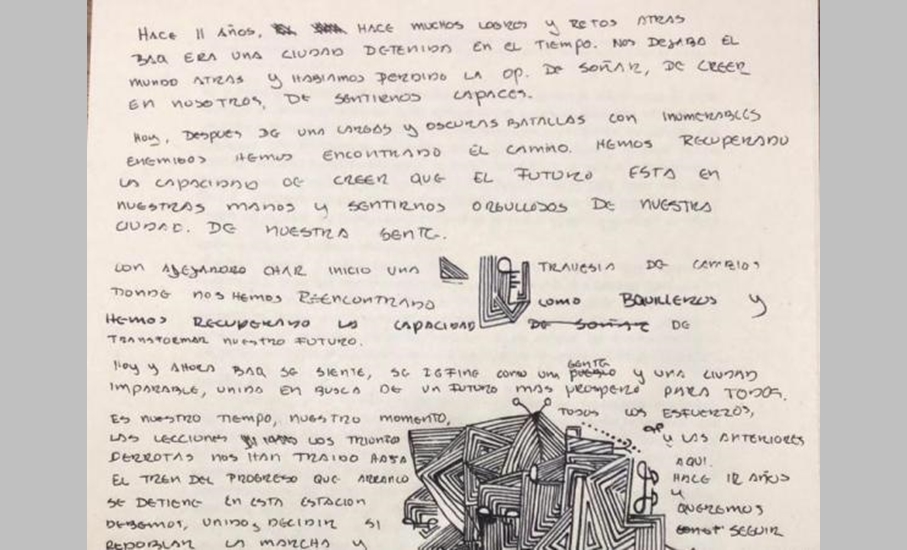 HACE 11 AÑOS, HACE MUCHOS LOGROS Y RETOS ATRAS
BAQ ERA UNA CIUDAD DETENIDA EN EL TIEMPO. NOS DEJABA EL
MUNDO ATRAS Y HABIAMOS PERDIDO LA OP. DE SOÑAR, DE CREER
EN NOSOTROS, DE SENTIRNOS CAPACES.
HOY, DESPUES DE UNA LARGAS Y OSCURAS BATALLAS CON INUMERABLES
ENEMIGOS HEMOS ENCONTRADO EL CAMINO. HEMOS RECUPERADO
LA CAPACIDAD DE CREER QUE EL FUTURO ESTA EN
NUESTRAS MANOS Y SENTIRNOS ORGULLOSOS DE NUESTRA
CIUDAD. DE NUESTRA GENTE.
CON ALEJANDRO CHAR INICIO UNA TRAVESIA DE CAMBIOS
DONDE NOS HEMOS REENCONTRADO COMO BQUILLEROS Y
HEMOS RECUPERADO LA CAPACIDAD DE SOÑAR DE
TRANSFORMAR NUESTRO FUTURO.
HOY Y AHORA BAQ SE SIENTE, SE DEFINE COMO UN PUEBLO GENTE Y UNA CIUDAD
IMPARABLE, UNIDA EN BUSCA DE UN FUTURO MAS PROSPERO PARA TODOS.
ES NUESTRO TIEMPO, NUESTRO MOMENTO, TODOS LOS ESFUERZOS,
LAS LECCIONES LOS TRIUNFO Y LAS ANTERIORES
DERROTAS NOS HAN TRAIDO HASA AQUI.
EL TREN DEL PROGRESO QUE ARRANCO HACE 12 AÑOS
SE DETIENE EN ESTA ESTACION Y
DEBEMOS, UNIDOS, DECIDIR SI QUEREMOS
REDOBLAR LA MARCHA Y SEGUIR